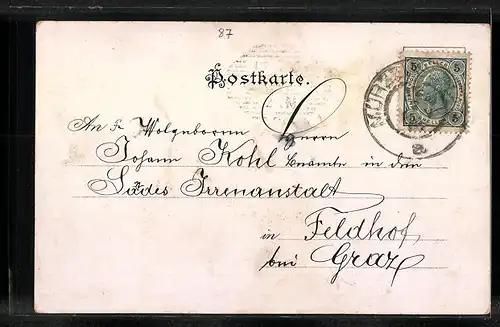 87
Postkarte.
An Sr Wolgeborenn Herrn
Johann Kohl Beamte in der
Lades Irrenanstalt
in Feldhof
bei Graz
MÜRZ
5 5
5 5